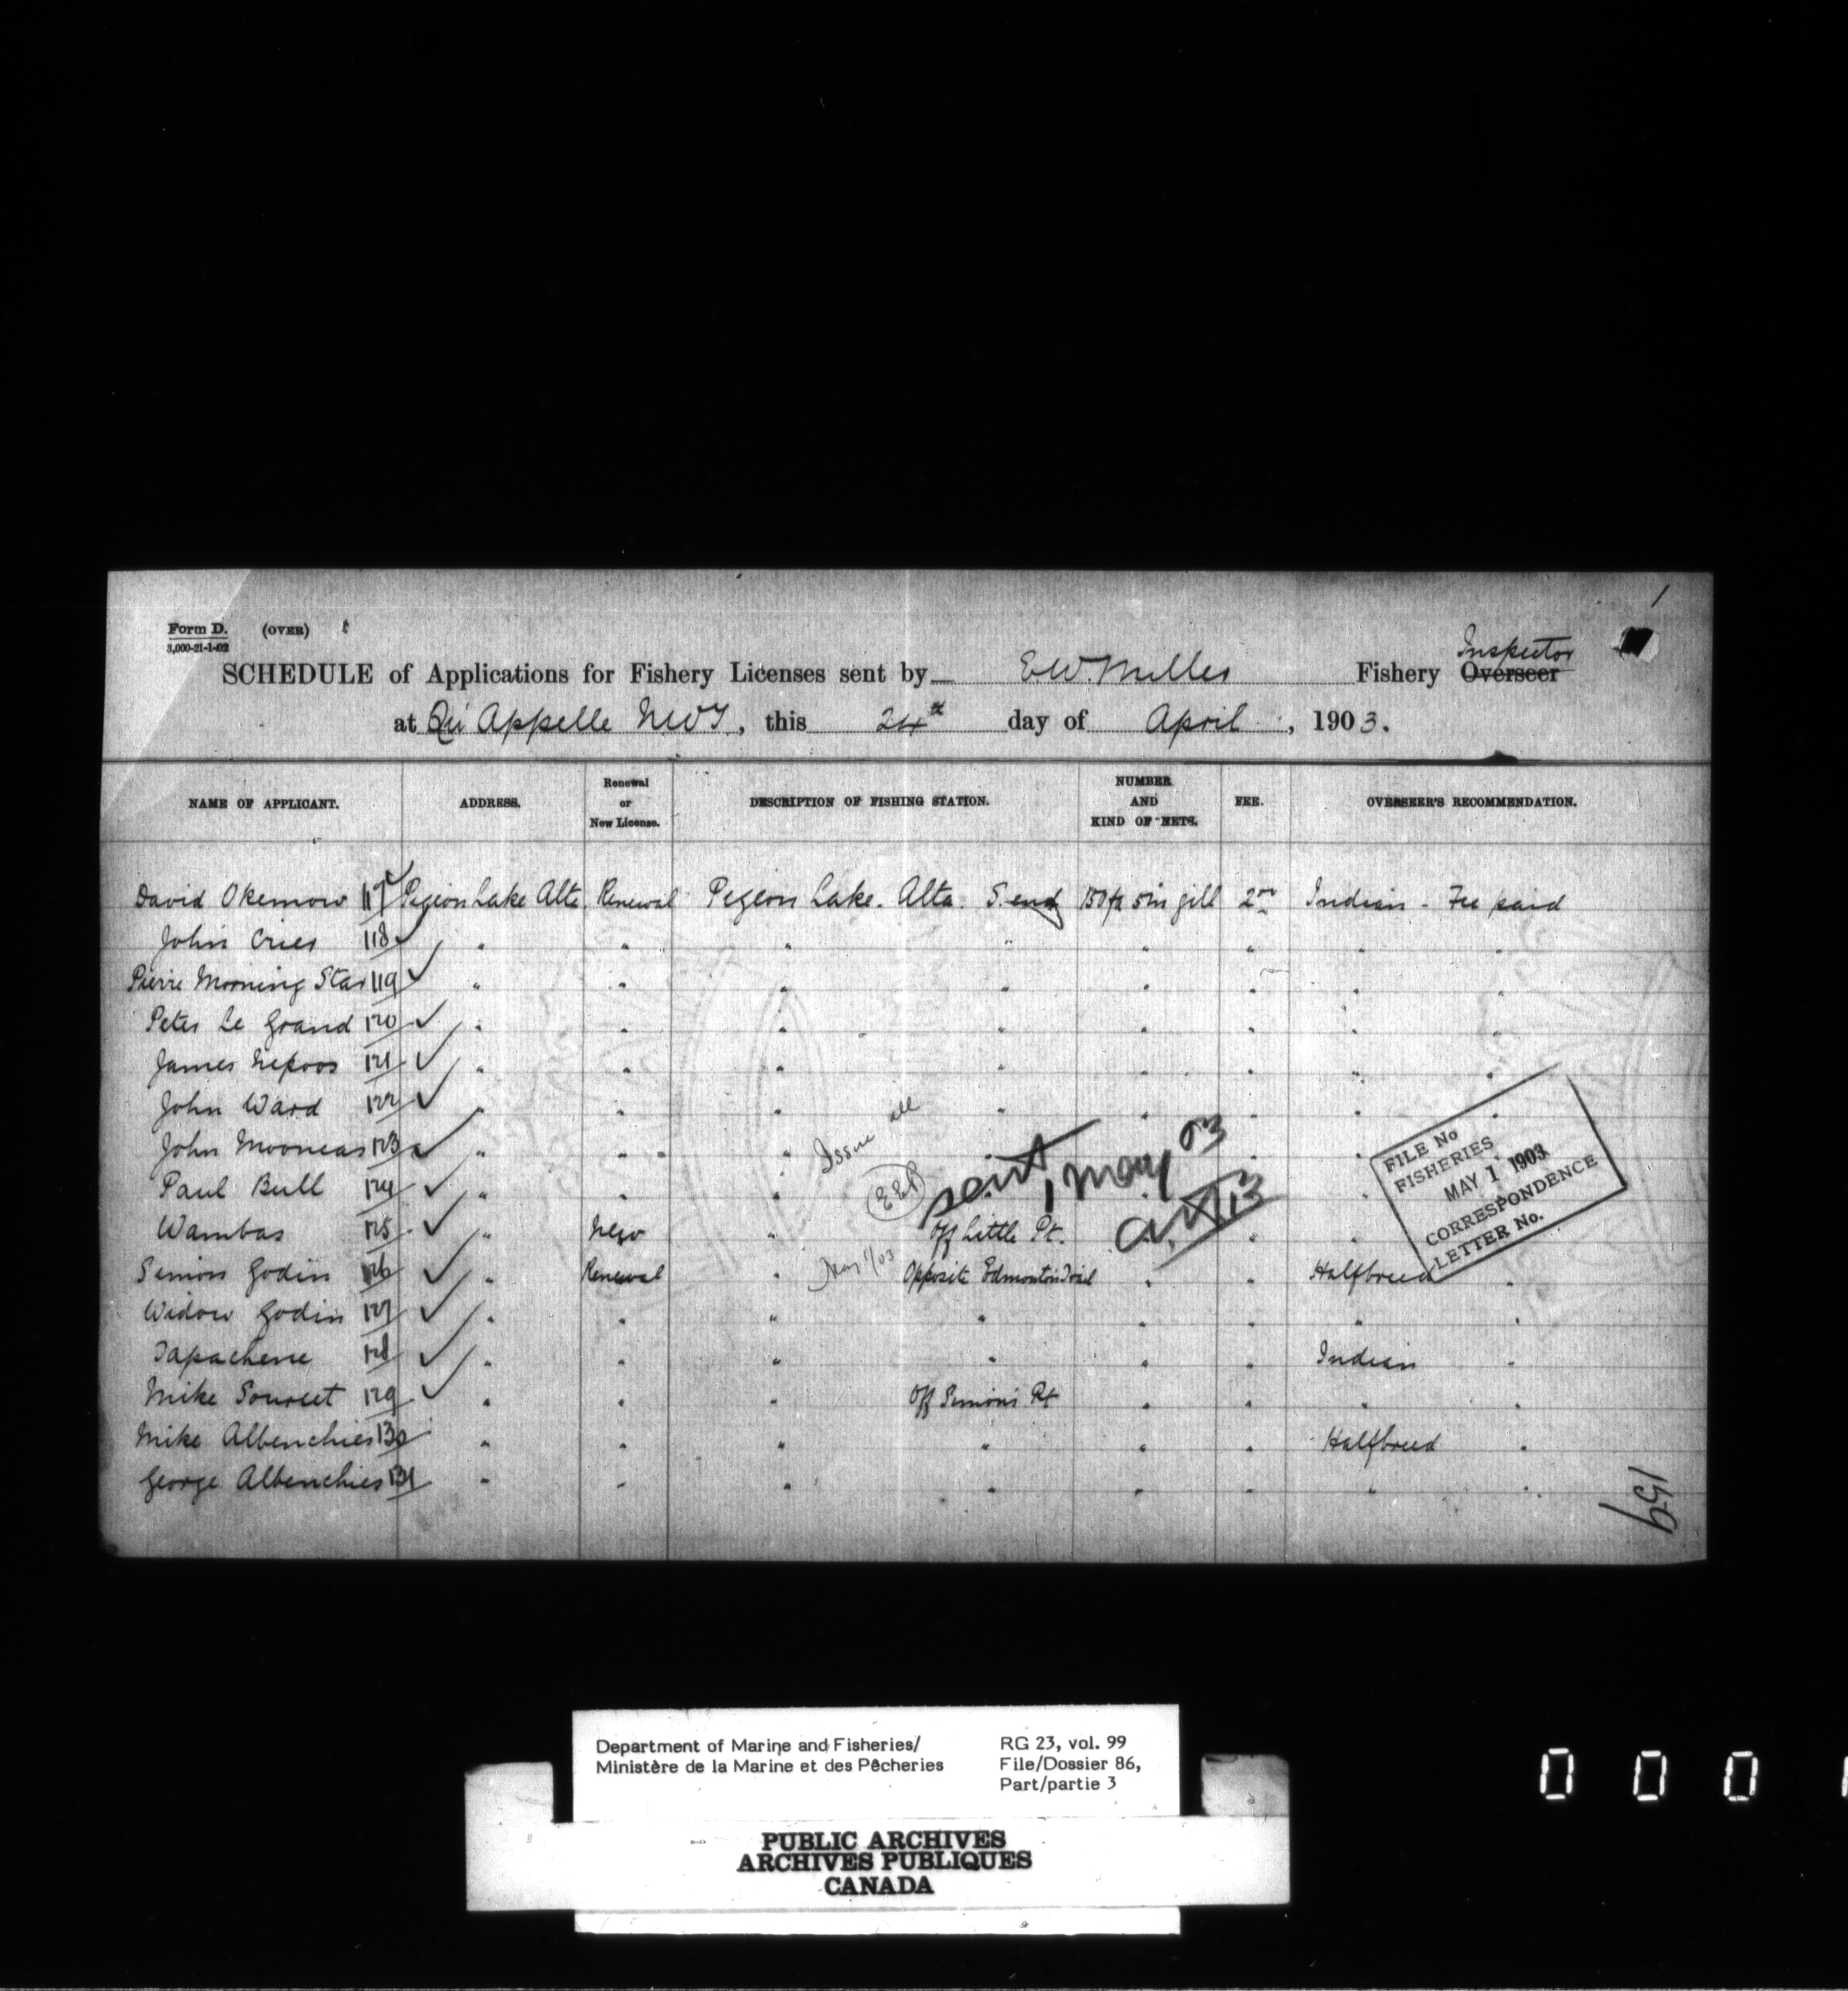 1
Form D. (OVER)
3,000-21-1-02
SCHEDULE of Applications for Fishery Licenses sent by E.W. Miller Fishery Overseer Inspector
at Qu Appelle NWT, this 24th day of April, 1903.
NAME OF APPLICANT. ADDRESS. Renewal or New License. DESCRIPTION OF FISHING STATION. NUMBER AND KIND OF NETS. FEE. OVERSEER'S RECOMMENDATION.
David Okemow 117 Pigeon Lake Alta. Renewal Pigeon Lake. Alta. S. end 150 fa 5 in gill 2 00 Indian - Fee paid
John Cries 118 " " " " " " " "
Pierre Morning Star 119 " " " " " " " "
Peter Le Grand 120 " " " " " " " "
James Nepoos 121 " " " " " " " "
John Ward 122 " " " " " " " "
John Mooneas 123 " " " " " " " "
Paul Bull 124 " " " " " " " "
Wambas 125 " New " Off Little Pt. " " " "
Simon Godin 126 " Renewal " Opposite Edmonton Trail " " Halfbreed "
Widow Godin 127 " " " " " " " "
Tapachene 128 " " " " " " Indian "
Mike Sourcet 129 " " " Off Simon's Pt " " " "
Mike Albenchies 130 " " " " " " Halfbreed "
George Albenchies 131 " " " " " " " "
Issue all
May 1/03
sent, may 03
FILE No
FISHERIES
MAY 1 1903
CORRESPONDENCE
LETTER No.
159
Department of Marine and Fisheries/
Ministère de la Marine et des Pêcheries
RG 23, vol. 99
File/Dossier 86,
Part/partie 3
PUBLIC ARCHIVES
ARCHIVES PUBLIQUES
CANADA
0 0 0